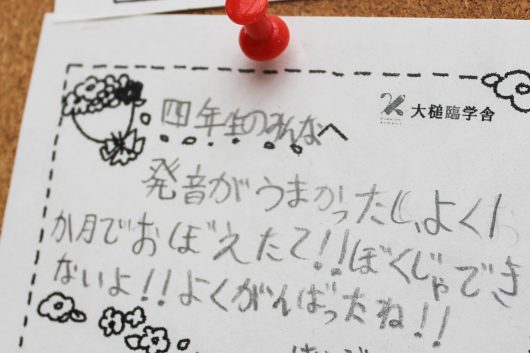 四年生のみんなへ
大槌臨学舎
発音がうまかったし、よく
か月でおぼえたて!!ぼくじゃでき
ないよ!!よくがんばったね!!